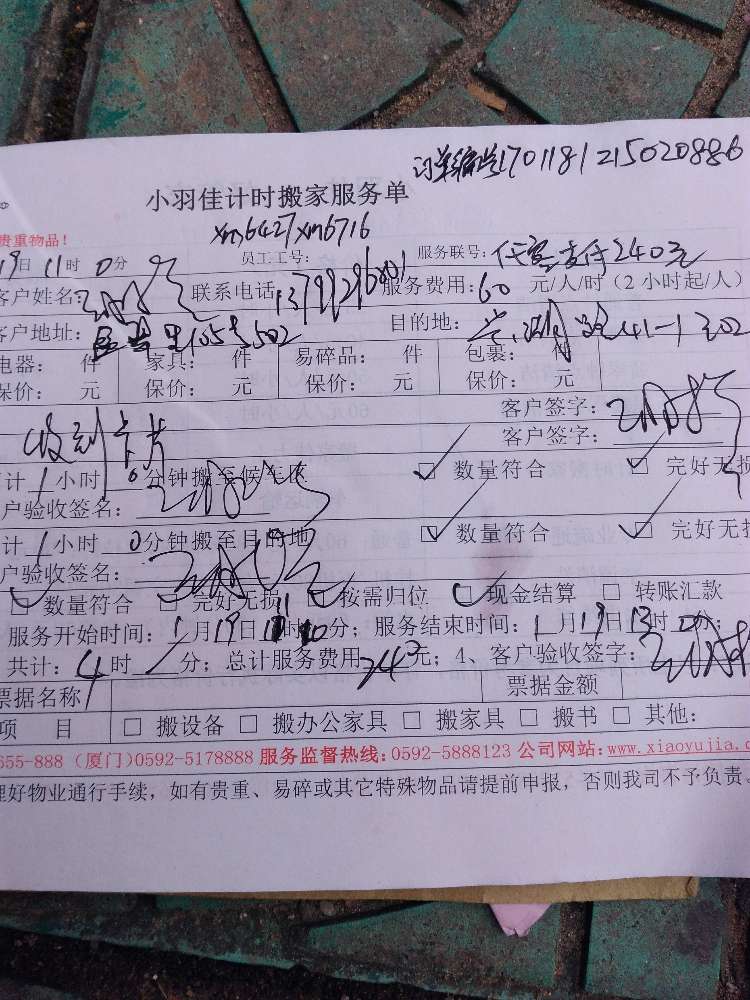 订单编号170118121502088​6
小羽佳计时搬家服务单
贵重物品!
xm6427 xm6716
19日11时0分 员工工号: 服务联号: 支付240元
客户姓名: 联系电话: 服务费用:60元/人/时(2小时起/人)
客户地址: 105号502 目的地: 41-1 202
电器: 件 家具: 件 易碎品: 件 包裹: 件
保价: 元 保价: 元 保价: 元 保价: 元
客户签字:
收到卡片 客户签字:
计1小时0分钟搬至候车区 数量符合 完好无损
户验收签名:
计1小时0分钟搬至目的地 数量符合 完好无损
户验收签名:
数量符合 完好无损 按需归位 现金结算 转账汇款
服务开始时间:1月19日11时00分;服务结束时间:1月19日13时0分;
共计:4时 分;总计服务费用240元;4、客户验收签字:
票据名称 票据金额
项 目 搬设备 搬办公家具 搬家具 搬书 其他:
555-888 (厦门)0592-5178888 服务监督热线:0592-5888123 公司网站:www.xiaoyujia.c
理好物业通行手续,如有贵重、易碎或其它特殊物品请提前申报,否则我司不予负责。